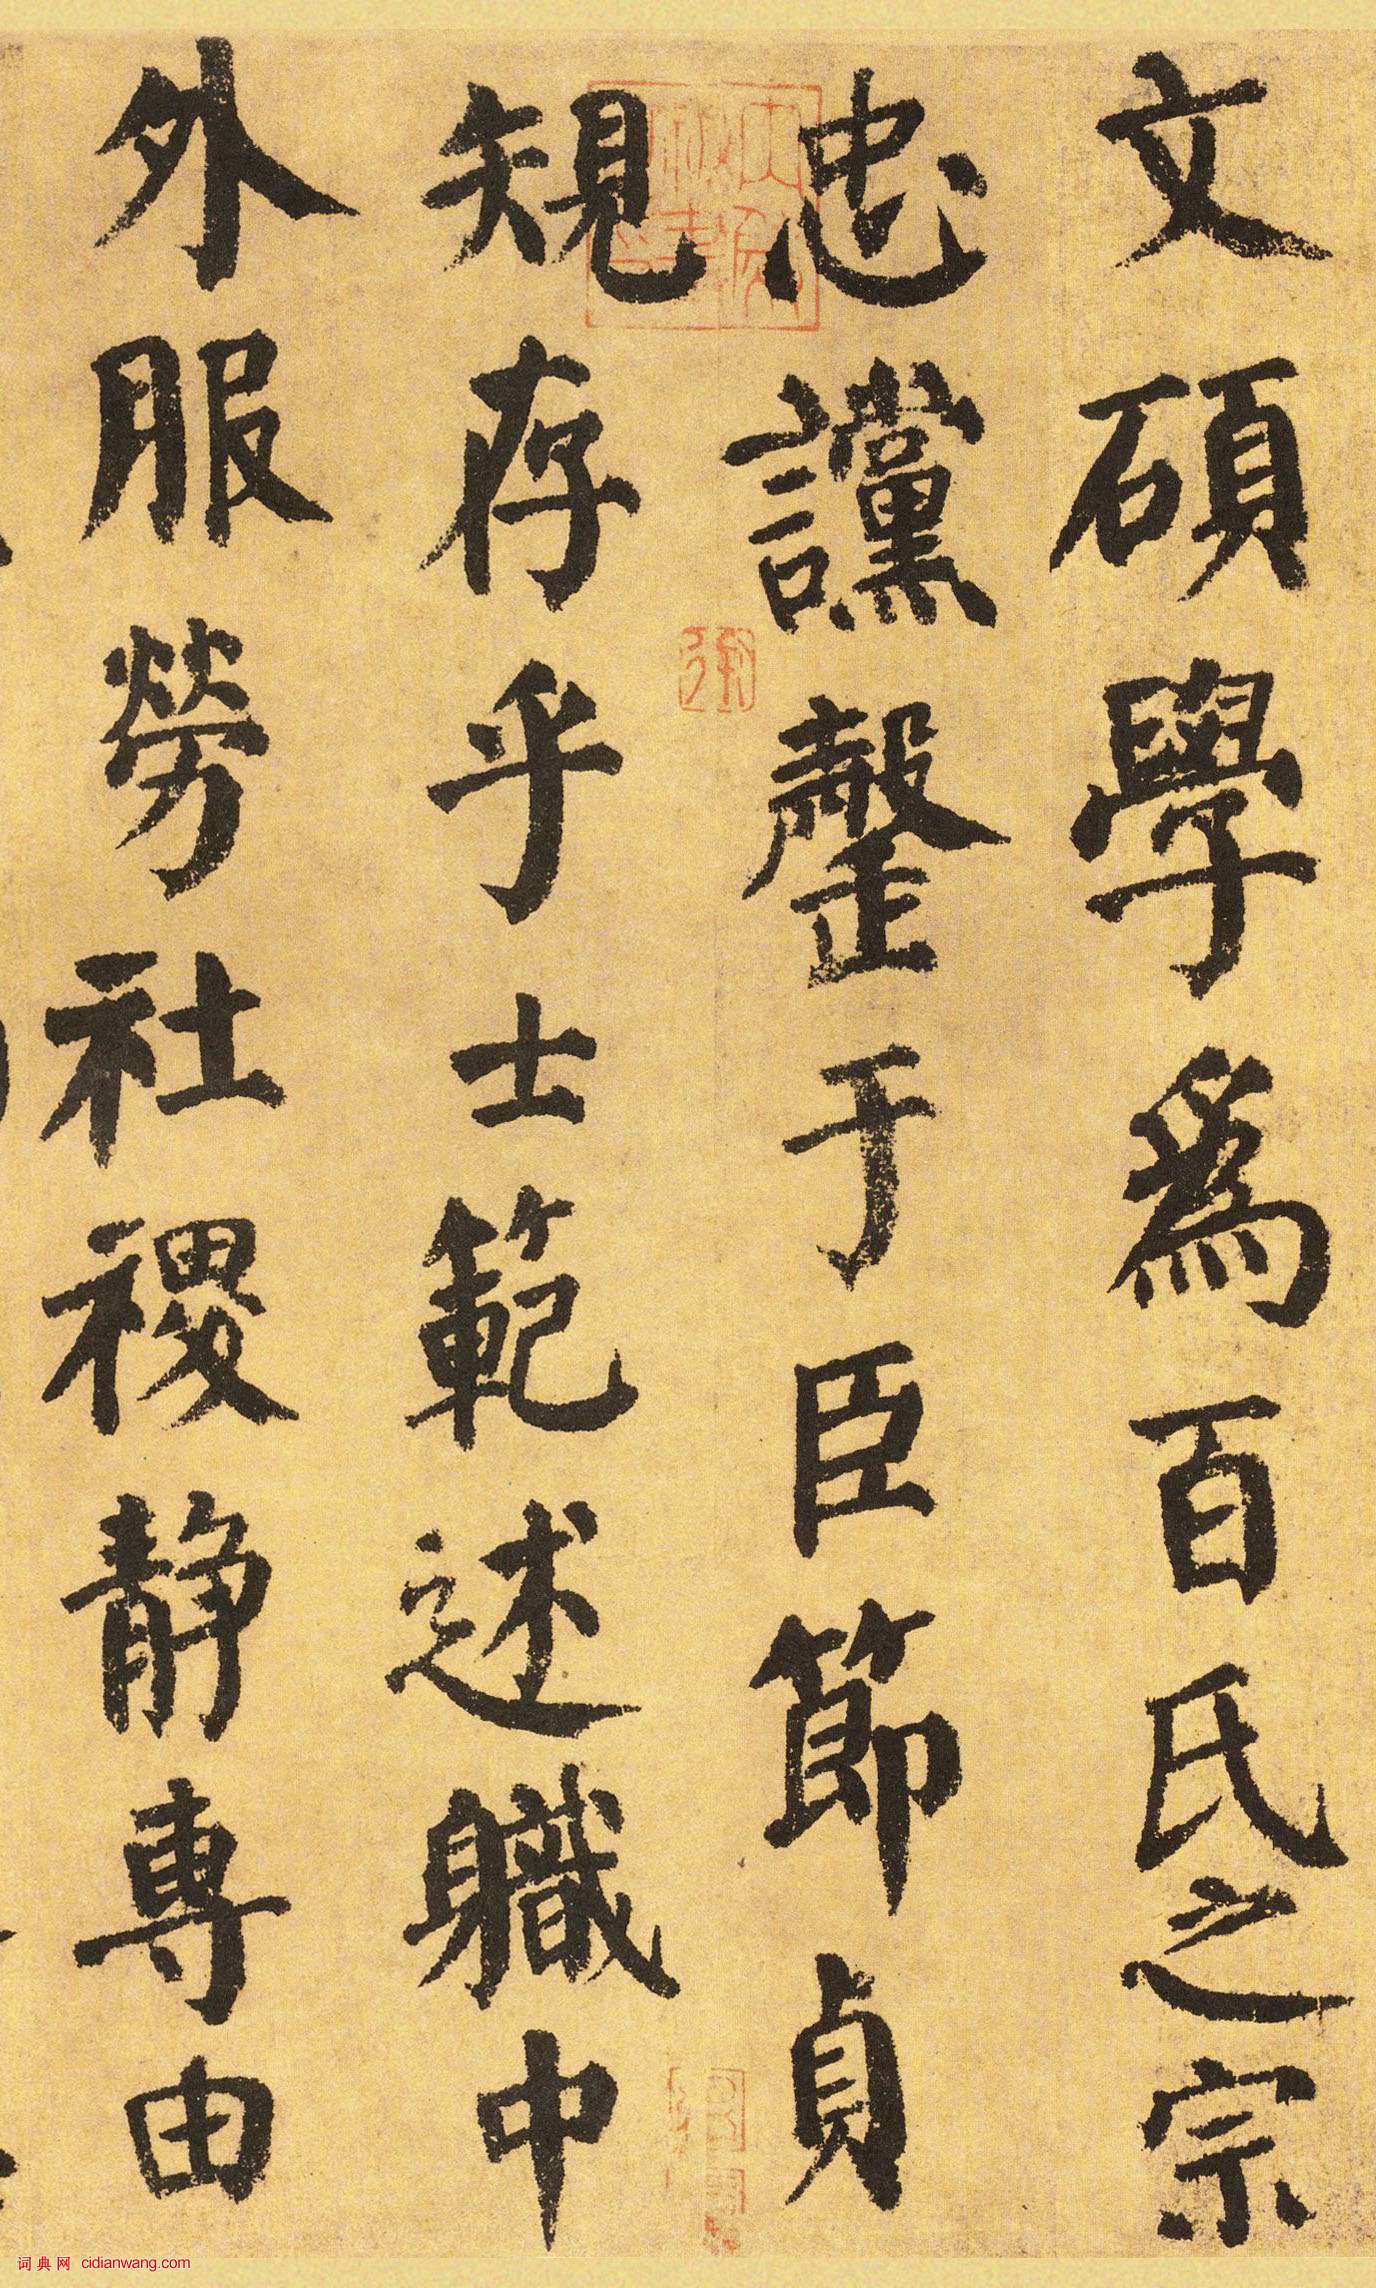 文碩學爲百氏之宗
忠讜罄于臣節貞
規存乎士範述軄中
外服勞社禝静專由
词典网 cidianwang.com